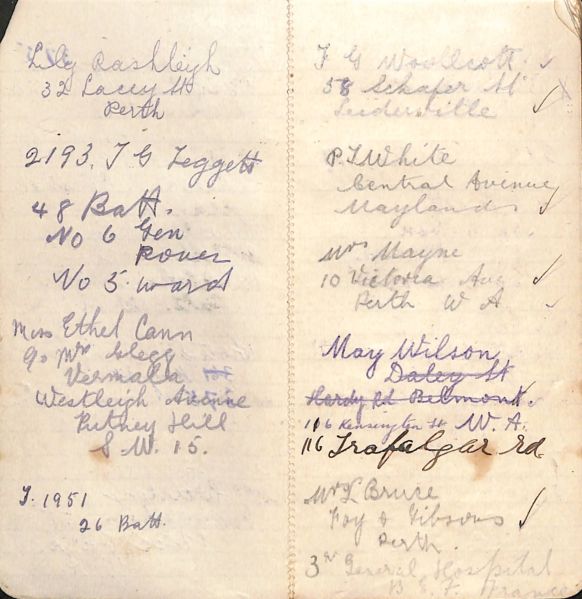 Lily Rashleigh
32 Lacey St
Perth
2193. T G Leggett
48 Batt.
No 6 Gen
Rouen
No 5. ward
Miss Ethel Cann
c/o Mrs Clegg
Vermala
Westleigh Avenue
Putney Hill
S. W. 15.
T. 1951
26 Batt.
T G Woollcott
58 Schafer St
Leiderville
P. T White
Central Avenue
Maylands
Mrs Mayne
10 Victoria Ave
Perth W A
May Wilson
Daley St
Hardy Rd Belmont.
116 Kensington St W. A.
116 Trafalgar rd.
Mr L Bruce
Foy & Gibsons
Perth.
3rd General Hospital
B. E. F. France